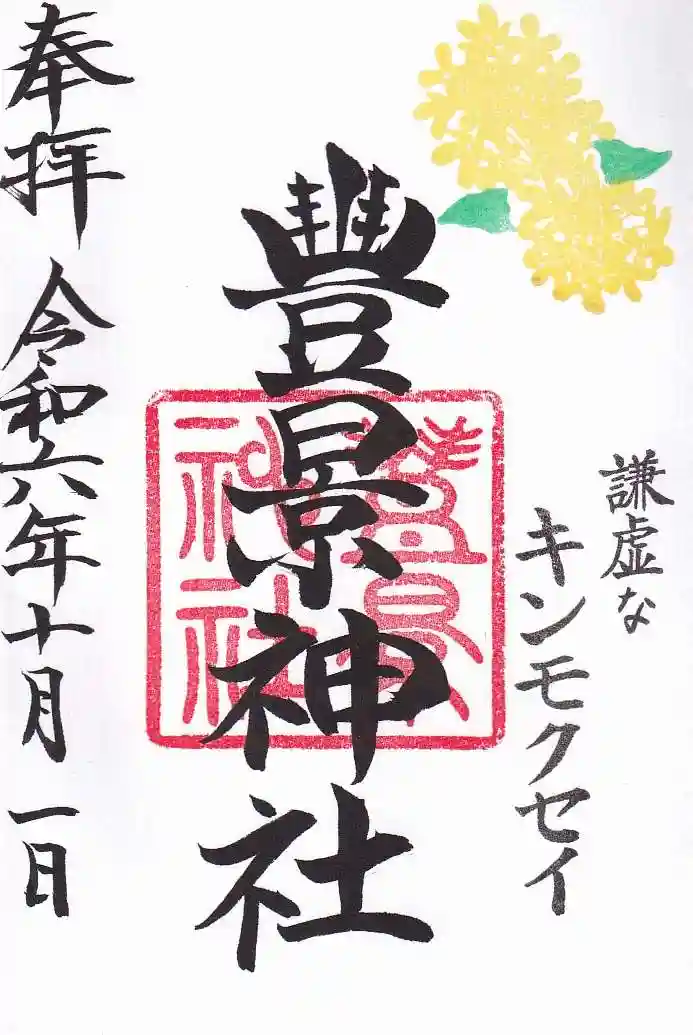 謙虚な
キンモクセイ
豐景神社
豐景神社
奉拝
令和六年十月一日